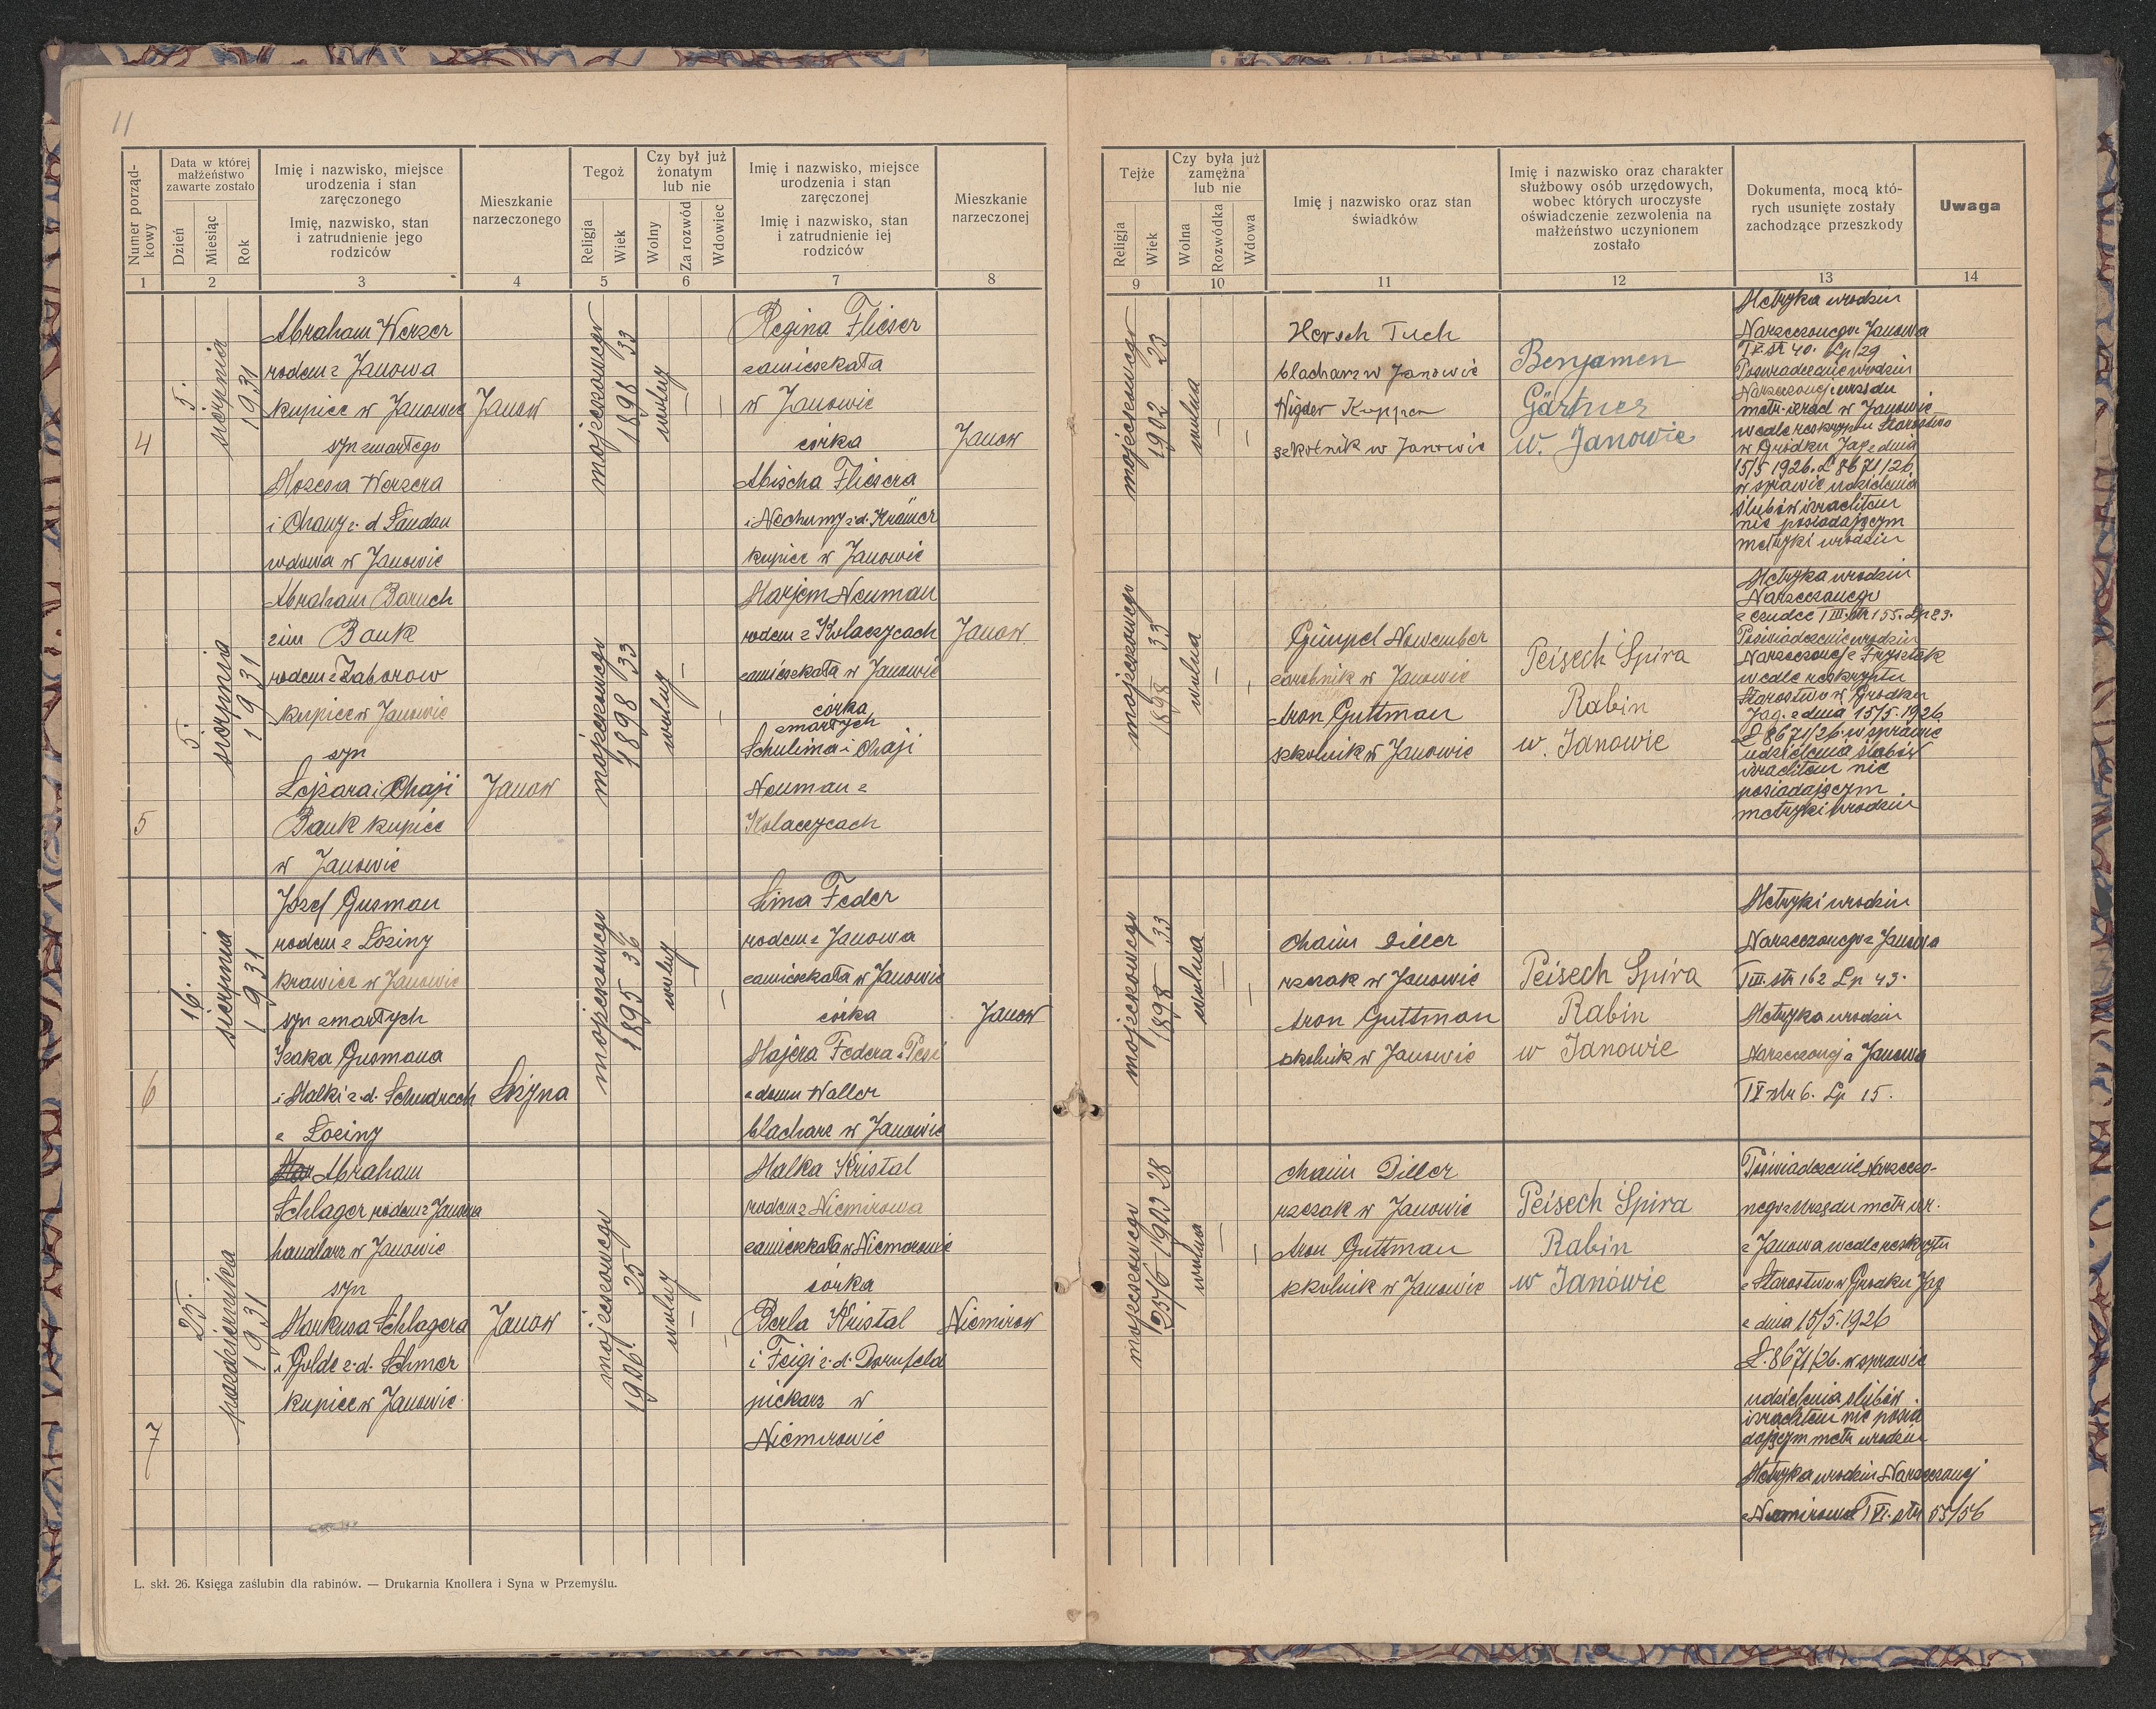 11
Numer porząd-
kowy
Data w której
małżeństwo
zawarte zostało
Dzień
Miesiąc
Rok
Imię i nazwisko, miejsce
urodzenia i stan
zaręczonego
Imię, nazwisko, stan
i zatrudnienie jego
rodziców
Mieszkanie
narzeczonego
Tegoż
Religja
Wiek
Czy był już
żonatym
lub nie
Wolny
Za rozwód
Wdowiec
Imię i nazwisko, miejsce
urodzenia i stan
zaręczonej
Imię i nazwisko, stan
i zatrudnienie iej
rodziców
Mieszkanie
narzeczonej
Tejże
Religja
Wiek
Czy była już
zamężna
lub nie
Wolna
Rozwódka
Wdowa
Imię j nazwisko oraz stan
świadków
Imię i nazwisko oraz charakter
służbowy osób urzędowych,
wobec których uroczyste
oświadczenie zezwolenia na
małżeństwo uczynionem
zostało
Dokumenta, mocą któ-
rych usunięte zostały
zachodzące przeszkody
Uwaga
1 2 3 4 5 6 7 8 9 10 11 12 13 14
4
5.
sierpnia
1931
Abraham Werzer
rodem z Janowa
kupiec w Janowie
syn zmarłego
Mozesa Werzera
i Chany z. d. Landau
wdowa w Janowie
Janow
mojżeszowego
1898 33
wolny
Regina Flieser
zamieszkała
w Janowie
córka
Abischa Fliesera
i Nechumy z d. Krämer
kupiec w Janowie
Janow
mojżeszowego
1902 29
wolna
Hersch Tuch
blacharz w Janowie
szkolnik w Janowie
Benjamen
Gärtner
w. Janowie
Metryka urodzin
Narzeczonego z Janowa
Lp 29
Poświadczenie urodzin
Narzeczonej urzędu
metr. izrael w Janowie
wedle reskryptu Starostwo
w Gródku Jag z dnia
15/5 1926. L 8671/26
w sprawie udzielenia
ślubów izraelitom
nie posiadającym
metryki urodzin
5
5.
sierpnia
1931
Abraham Baruch
zim Bank
rodem z Zaborow
kupiec w Janowie
syn
Lejzora i Chaji
Bank kupiec
w Janowie
Janow
mojżeszowego
1898 33
wolny
Marjem Neuman
rodem z Kolaczycach
zamieszkała w Janowie
córka
zmarłych
Schulima i Chaji
Neuman z
Kolaczycach
Janow
mojżeszowego
1898 33
wolna
Gimpel Nowember
zarobnik w Janowie
Aron Guttman
szkolnik w Janowie
Peisech Spira
Rabin
w. Janowie
Metryka urodzin
Narzeczonego
Poświadczenie urodzin
Narzeczonej z Frysztak
wedle reskryptu
Starostwo w Grodku
Jag. z dnia 15/5. 1926
L 8671/26. w sprawie
udzielenia ślubów
izraelitom nie
posiadającym
metryki urodzin
6
16.
sierpnia
1931
Jozef Gusman
rodem z Loziny
krawiec w Janowie
syn zmarłych
Izaka Gusmana
i Malki z. d. Schudrech
z Loziny
Lozyna
mojżeszowego
1895 36
wolny
Sima Feder
rodem z Janowa
zamieszkała w Janowie
córka
Majera Federa i Pesi
z domu Waller
blacharz w Janowie
Janow
mojżeszowego
1898 33
wolna
Chaim Diller
rzezak w Janowie
Aron Guttman
szkolnik w Janowie
Peisech Spira
Rabin
w Janowie
Metryki urodzin
Narzeczonego z Janowa
T III. str 162 Lp 43.
Metryka urodzin
Narzeczonej z Janowa
6. Lp 15.
7
25.
października
1931
Abraham
Schlager rodem z Janowa
handlarz w Janowie
syn
Markusa Schlagera
i Golde z. d. Schmer
kupiec w Janowie
Janow
mojżeszowego
1906 25
wolny
Malka Kristal
rodem z Niemirowa
zamieszkała w Niemirowie
córka
Berla Kristal
i Feigi z. d. Dornfeld
piekarz w
Niemirowie
Niemirow
mojżeszowego
25/6 1903 28
wolna
Chaim Diller
rzezak w Janowie
Aron Guttman
szkolnik w Janowie
Peisech Spira
Rabin
w Janowie
Poświadczenie Narzeczo-
nego z Urzędu metr izr.
z Janowa wedle reskryptu
z Starostwo w Grodku Jag
z dnia 15/5. 1926
L. 8671/26. w sprawie
udzielenia ślubów
izraelitom nie posia
dającym metr urodzin
Metryka urodzin Narzeczonej
z Niemirowa str 55/56
L. skł. 26. Księga zaślubin dla rabinów. — Drukarnia Knollera i Syna w Przemyślu.